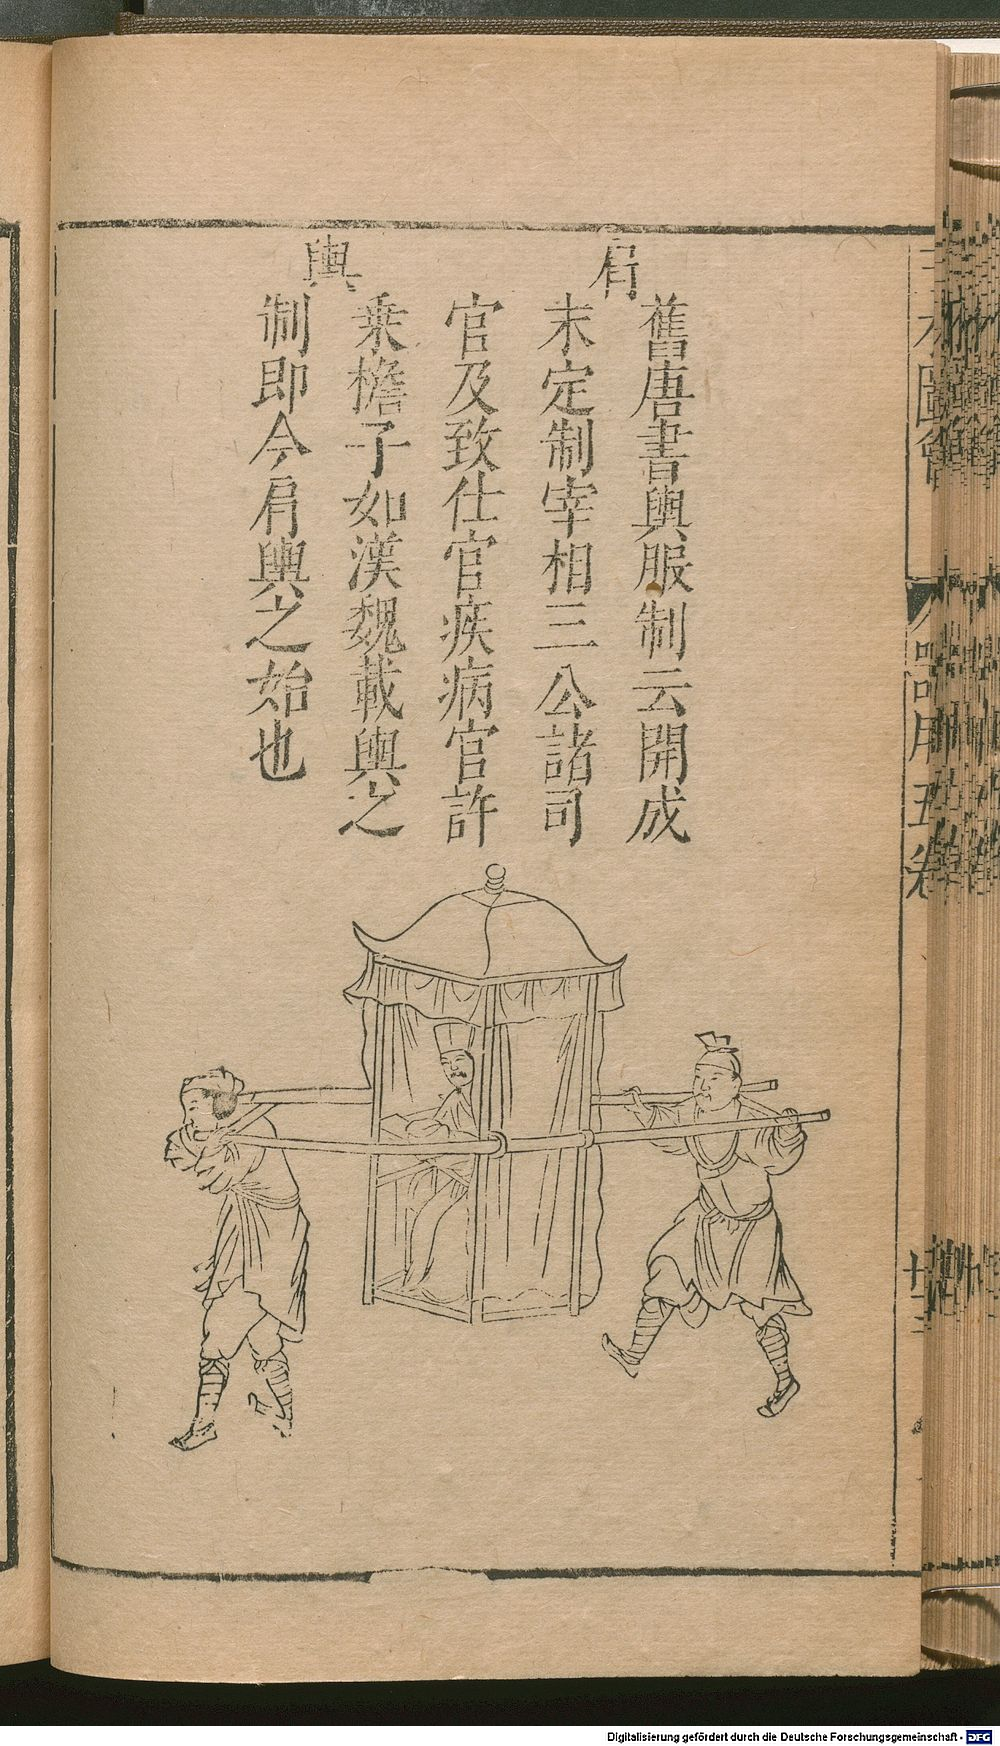 肩輿
舊唐書輿服制云開成
末定制宰相三公諸司
官及致仕官疾病官許
乗檐子如漢魏載輿之
制即今肩輿之始也
器用五卷
Digitalisierung gefördert durch die Deutsche Forschungsgemeinschaft - DFG